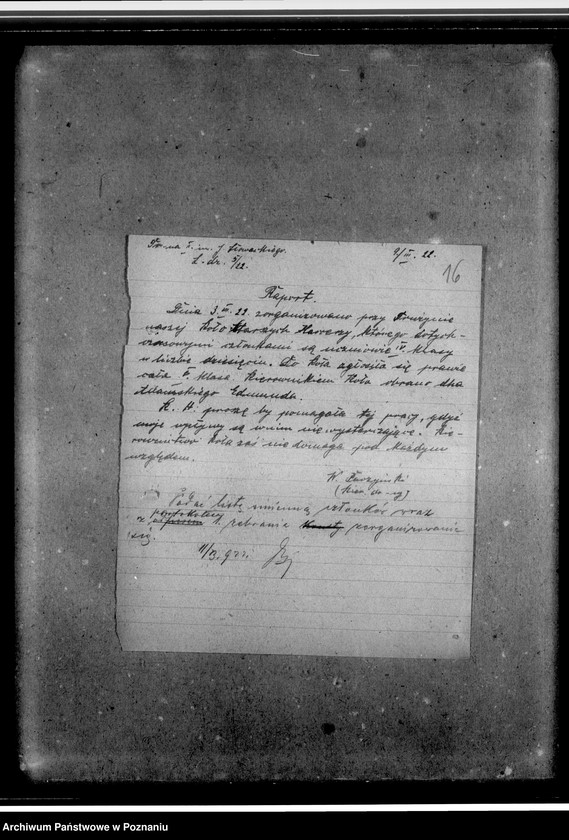 9/III. 22.
L. dz. 5/22.
16
Raport.
Dnia 3.III.22. zorganizowano przy Drużynie
naszej Koło Starszych Harcerzy, którego dotych-
czasowymi członkami są uczniowie IV. klasy
w liczbie dziesięciu. Do Koła zgłosiła się prawie
cała V. klasa. Kierownikiem Koła obrano dha
Adamskiego Edmunda.
K. H. proszę by pomagała tej pracy, gdyż
moje wpływy są w nim nie wystarczające. Kie-
rownictwo Koła zaś nie domaga pod każdym
względem.
K.
Podać listę imienną członków oraz
z protokołem 1. zebranie zorganizowanie
się.
11/3. 922.
Archiwum Państwowe w Poznaniu